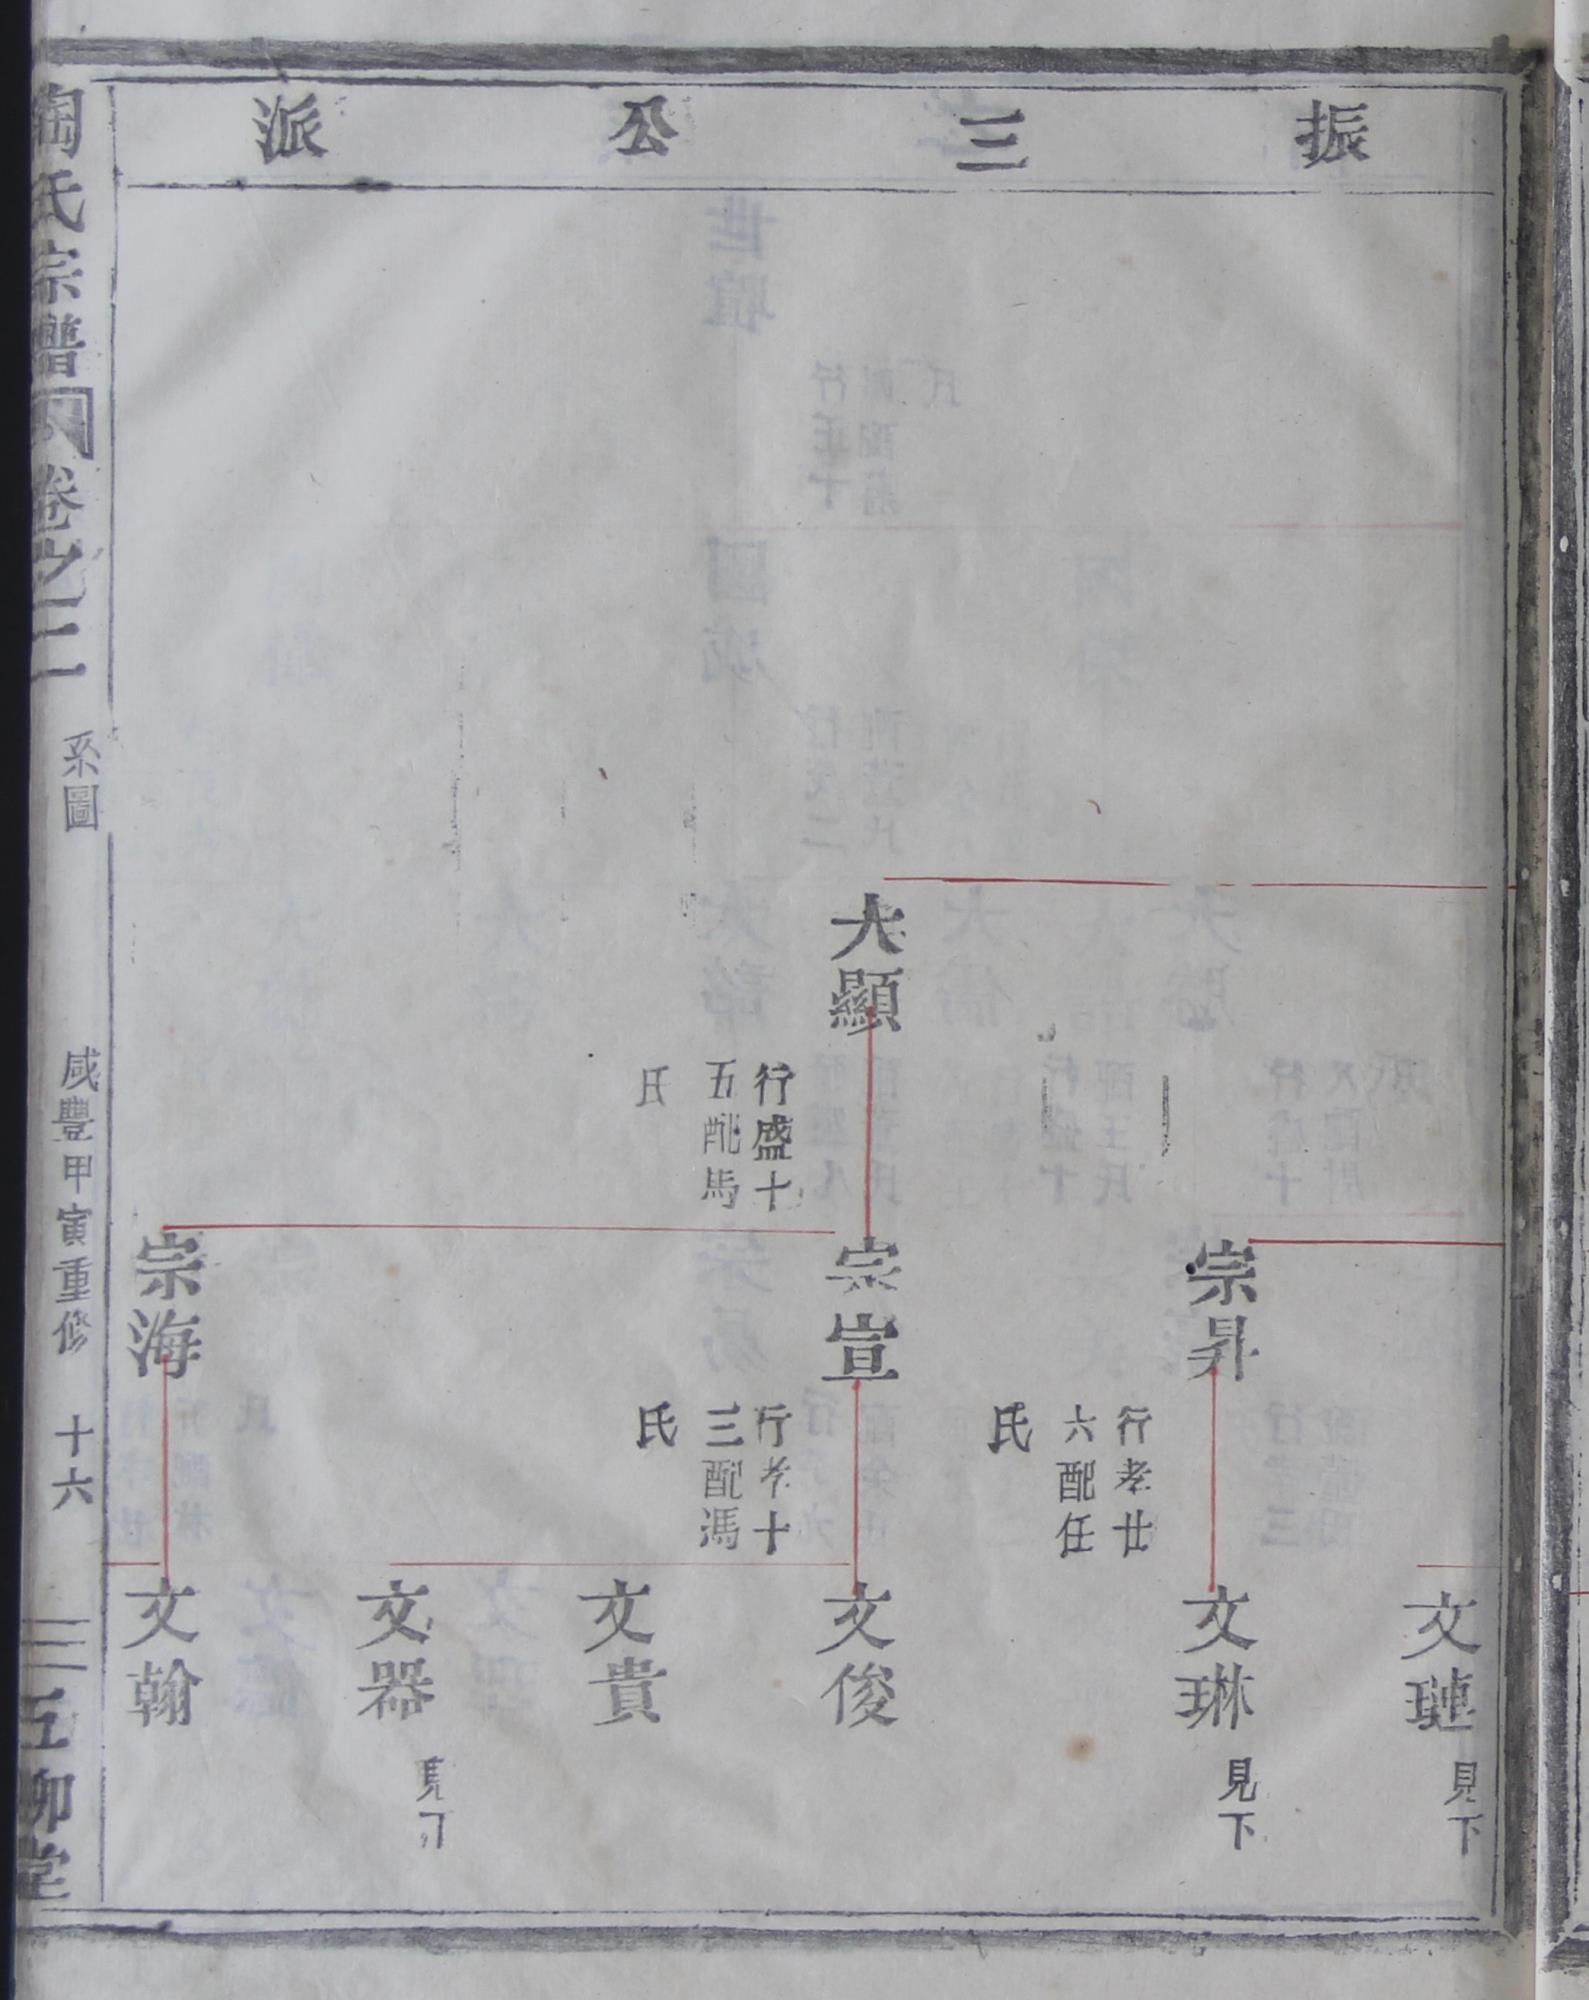 振三公派
大顯
行盛十
五配馬
氏
宗昇
行孝廿
六配任
氏
宗宣
行孝十
三配馮
氏
宗海
文璉
見下
文琳
見下
文俊
文貴
文器
見下
文翰
陶氏宗譜
卷之二
系圖
咸豐甲寅重修
十六
五柳堂